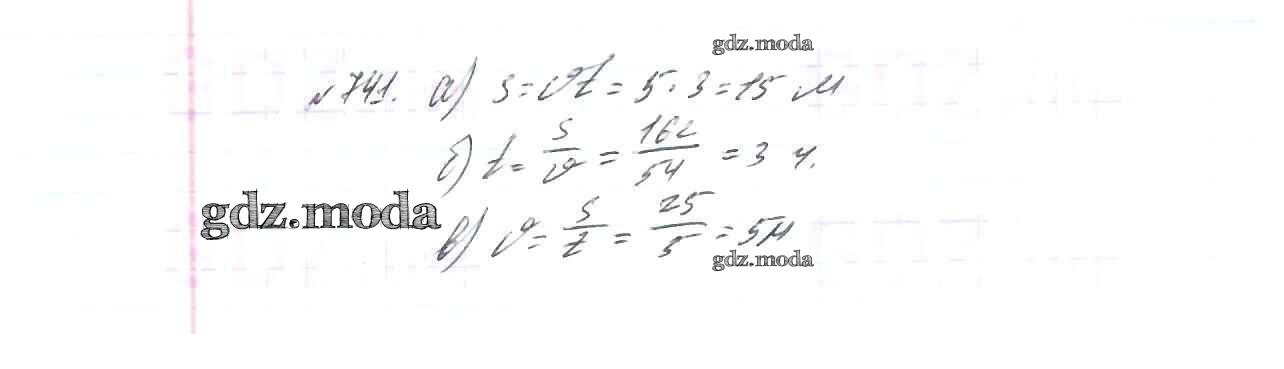 gdz.moda
№741. а) s = vt = 5 · 3 = 15 м
б) t = s/v = 162/54 = 3 ч.
gdz.moda
в) v = s/t = 25/5 = 5м
gdz.moda